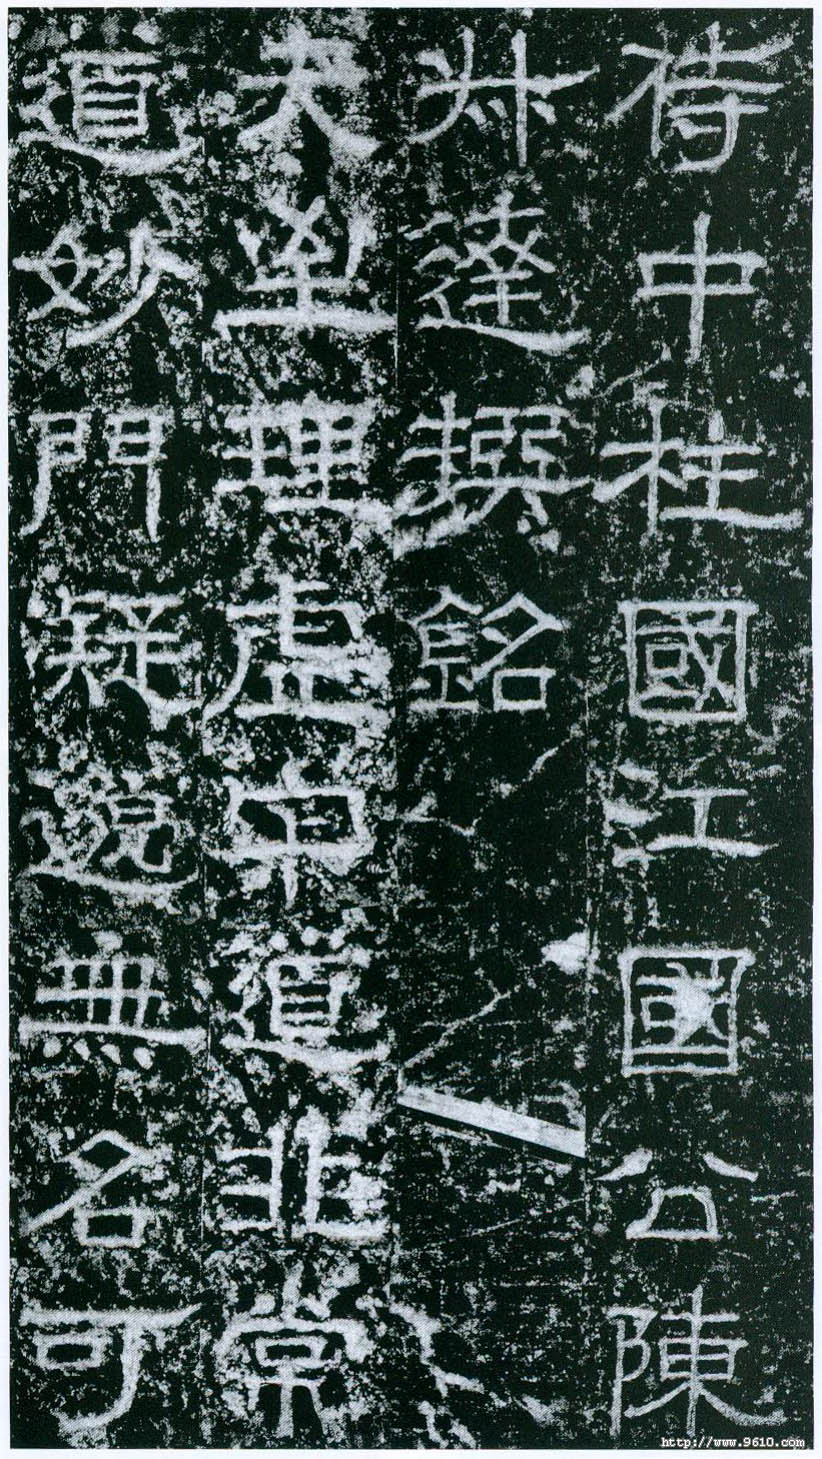 侍中柱國江國公陳
叔達撰銘
夫至理虛寂道非常
道妙門疑邈無名可
http://www.9610.com